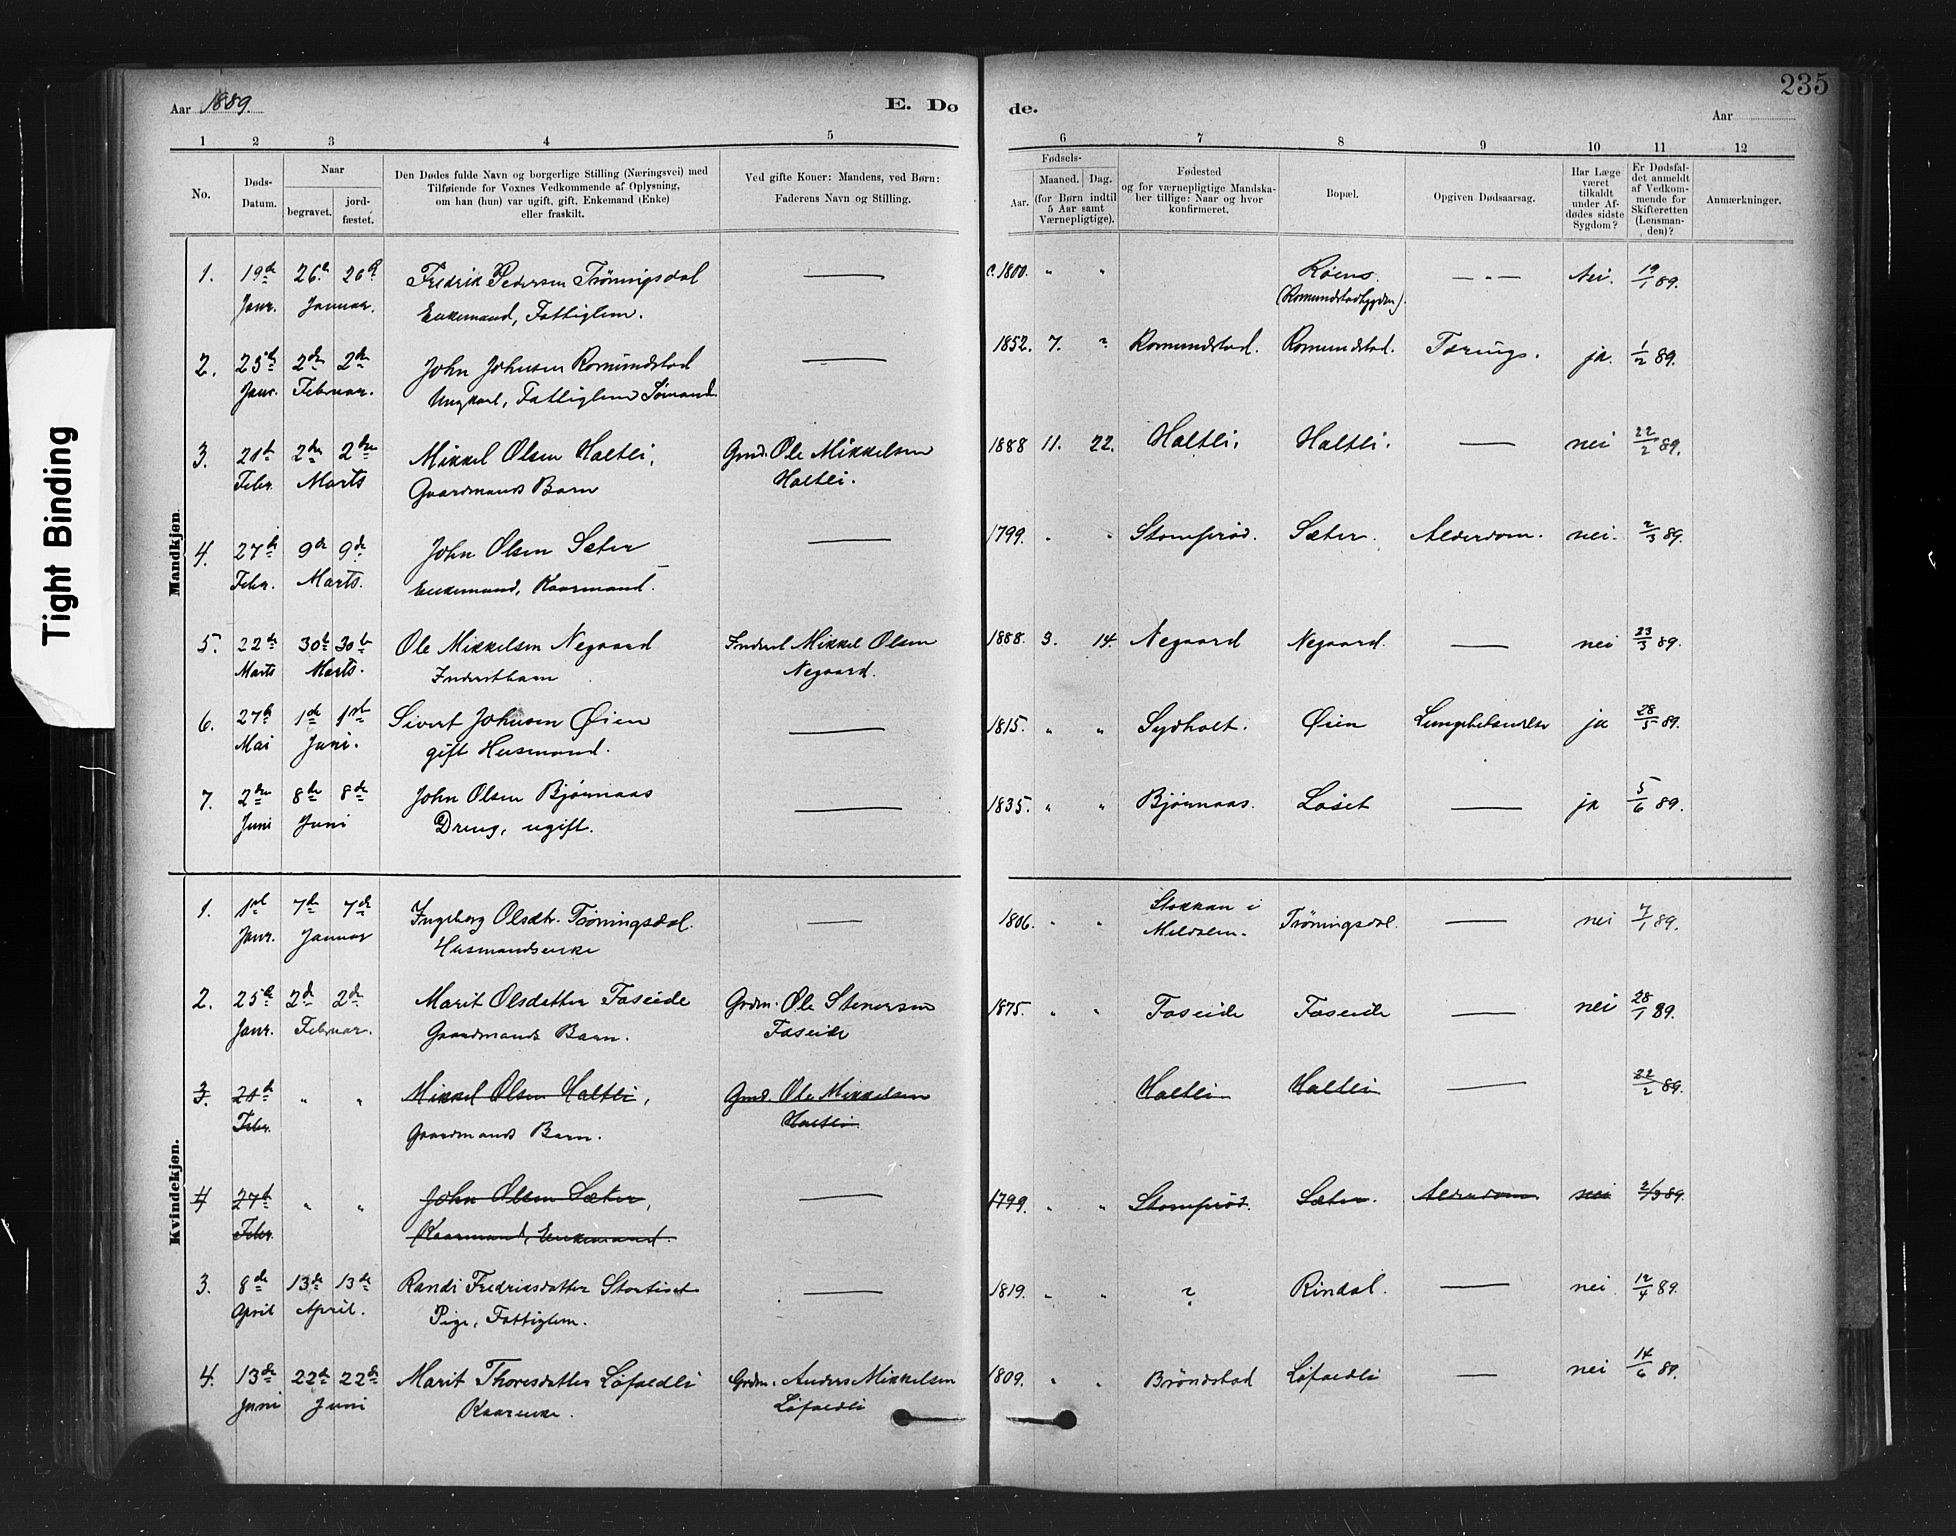 Tight Binding
235
Aar 1889. E. Dø de. Aar
1 2 3 4 5 6 7 8 9 10 11 12
No.
Døds-
Datum.
Naar
begravet.
jord-
fæstet.
Den Dødes fulde Navn og borgerlige Stilling (Næringsvei) med
Tilføiende for Voxnes Vedkommende af Oplysning,
om han (hun) var ugift, gift, Enkemand (Enke)
eller fraskilt.
Ved gifte Koner: Mandens, ved Børn:
Faderens Navn og Stilling.
Fødsels-
Aar.
Maaned. Dag.
(for Børn indtil
5 Aar samt
Værnepligtige).
Fødested
og for værnepligtige Mandska-
ber tillige: Naar og hvor
konfirmeret.
Bopæl.
Opgiven Dødsaarsag.
Har Læge
været
tilkaldt
under Af-
dødes sidste
Sygdom?
Er Dødsfal-
det anmeldt
af Vedkom-
mende for
Skifteretten
(Lensman-
den)?
Anmærkninger.
Mandkjøn.
1. 19de 26e 26e Fredrik Pedersen Trøningsdal — c. 1800. " " Røens. — " — Nei. 19/1 89.
Janr. Januar. Enkemand, Fattiglem. (Romundstadbygden).
2. 25de 2den 2den John Johnsen Romundstad — 1852. 7. ? Romundstad. Romundstad. Tærings. ja. 1/2 89.
Janr. Februar. Ungkarl, Fattiglem Sømand.
3. 21de 2den 2den Mikkel Olsen Haltli, Grmd. Ole Mikkelsen 1888 11. 22. Haltli. Haltli. — nei 22/2 89.
Febr. Marts Gaardmands Barn Haltli.
4. 27de 9de 9de John Olsen Sæter — 1799. " " Stomprød. Sæter. Alderdom. nei. 2/3 89.
Febr. Marts. Enkemand, Kaarmand.
5. 22de 30te 30te Ole Mikkelsen Negaard Inderst Mikkel Olsen 1888. 3. 14. Negaard Negaard. — nei 23/3 89.
Marts Marts. Inderstbarn Negaard.
6. 27de 1ste 1ste Sivert Johnsen Øien — 1815. " " Sydhalt. Øien ja 28/5 89.
Mai Juni. gift Husmand.
7. 2den 8de 8de John Olsen Bjørnaas — 1835. " " Bjørnaas. Løset — ja 5/6 89.
Juni Juni Dreng, ugift.
Kvindekjøn.
1. 1ste 7de 7de Ingeborg Olsdtr. Trøningsdal. — 1806. " " Stokkan i Trøningsdal. — nei 7/1 89.
Janr. Januar Husmandsenke Meldalen.
2. 25de 2den 2den Marit Olsdatter Faseide Grdm. Ole Stenersen 1875. " " Faseide Faseide — nei 28/1 89.
Janr. Februar. Gaardmands Barn. Faseide
3. 21de " " Mikkel Olsen Haltli, Grmd. Ole Mikkelsen Haltli Haltli — 22/2 89.
Febr. Gaardmands Barn. Haltli
4 27de " " John Olsen Sæter, — 1799. " " Stomprød. Sæter. Alderdom. nei 2/3 89.
Febr. Kaarmand, Enkemand.
3. 8de 13de 13de Randi Fredriksdatter — 1819. " " ? Rindal. — nei 12/4 89.
April April. Pige, Fattiglem.
4. 13de 22de 22de Marit Thoresdatter Løfaldli Grdm. Anders Mikkelsen 1809. " " Brøndstad Løfaldli — nei 14/6 89.
Juni Juni Kaarenke. Løfaldli